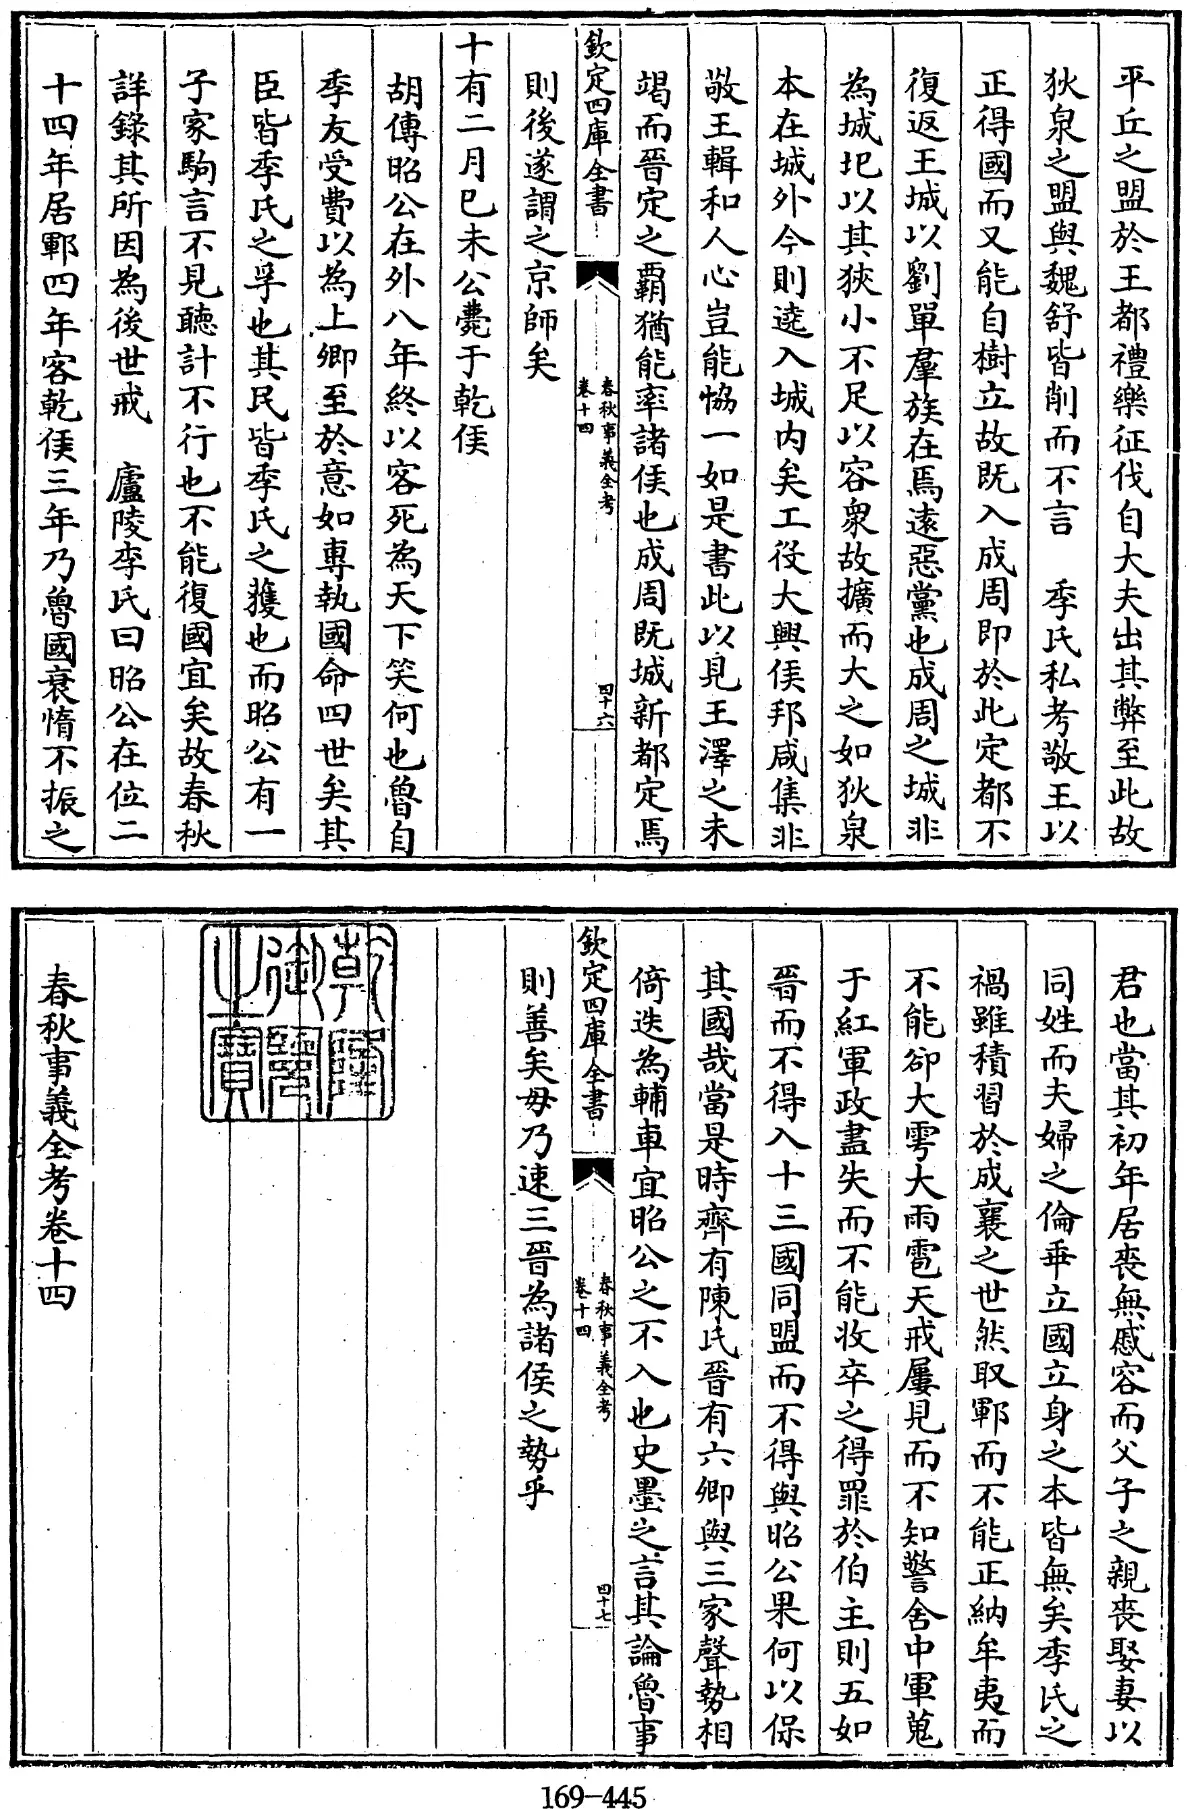 平丘之盟於王都禮樂征伐自大夫出其弊至此故
狄泉之盟與魏舒皆削而不言　季氏私考敬王以
正得國而又能自樹立故既入成周即於此定都不
復返王城以劉單羣族在焉遠惡黨也成周之城非
為城圯以其狹小不足以容衆故擴而大之如狄泉
本在城外今則遶入城内矣工役大興侯邦咸集非
敬王輯和人心豈能恊一如是書此以見王澤之未
竭而晉定之覇猶能率諸侯也成周既城新都定焉
欽定四庫全書
春秋事義全考
卷十四
四十六
則後遂謂之京師矣
十有二月己未公薨于乾侯
胡傳昭公在外八年終以客死為天下笑何也魯自
季友受費以為上卿至於意如專執國命四世矣其
臣皆季氏之孚也其民皆季氏之獲也而昭公有一
子家駒言不見聽計不行也不能復國宜矣故春秋
詳錄其所因為後世戒　廬陵李氏曰昭公在位二
十四年居鄆四年客乾侯三年乃魯國衰惰不振之
君也當其初年居喪無慼容而父子之親喪娶妻以
同姓而夫婦之倫乖立國立身之本皆無矣季氏之
禍雖積習於成襄之世然取鄆而不能正納牟夷而
不能卻大雩大雨雹天戒屢見而不知警舍中軍蒐
于紅軍政盡失而不能收卒之得罪於伯主則五如
晉而不得入十三國同盟而不得與昭公果何以保
其國哉當是時齊有陳氏晉有六卿與三家聲勢相
倚迭為輔車宜昭公之不入也史墨之言其論魯事
欽定四庫全書
春秋事義全考
卷十四
四十七
則善矣毋乃速三晉為諸侯之勢乎
乾隆御覽之寶
春秋事義全考卷十四
169-445